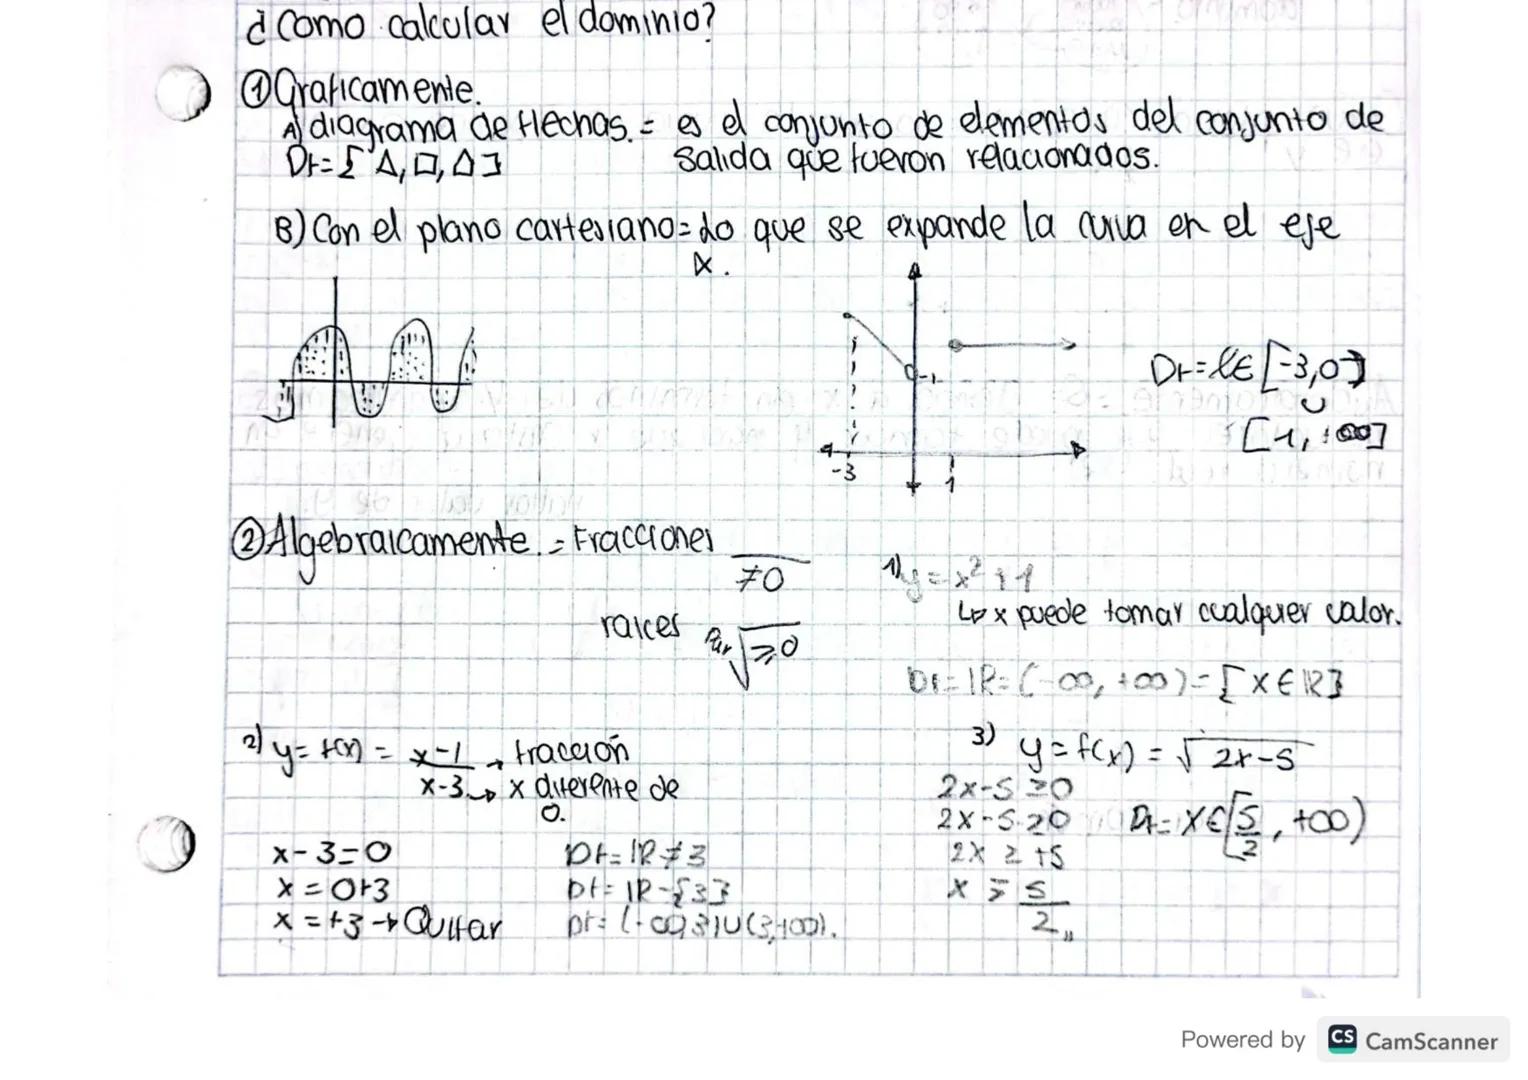 ¿Como calcular el dominio?
① Graficamente.
A) diagrama de flechas. = es el conjunto de elementos del conjunto de
Df = { Δ, □, Δ }
salida que fueron relacionados.
B) Con el plano cartesiano = Lo que se expande la curva en el eje
X.
-1
-3
1
Df = [-3,0]
∪
[1, +∞]
② Algebraicamente. = Fracciones
≠0
raices
Par √≥0
1) y = x² + 1
↳ x puede tomar cualquier valor.
Df = IR = (-∞, +∞) = { X ∈ IR }
2) y = f(x) = x-1 / x-3 → fracción
→ x diferente de
0.
x - 3 = 0
x = 0+3
x = +3 → Quitar
Df = IR ≠ 3
Df = IR - {3}
Df = (-∞, 3) ∪ (3, +∞).
3) y = f(x) = √2x-5
2x-5 ≥0
2x-5 ≥0
2x ≥ +5
x ≥ 5/2 "
Df = X ∈ [5/2, +∞)
Powered by CS CamScanner